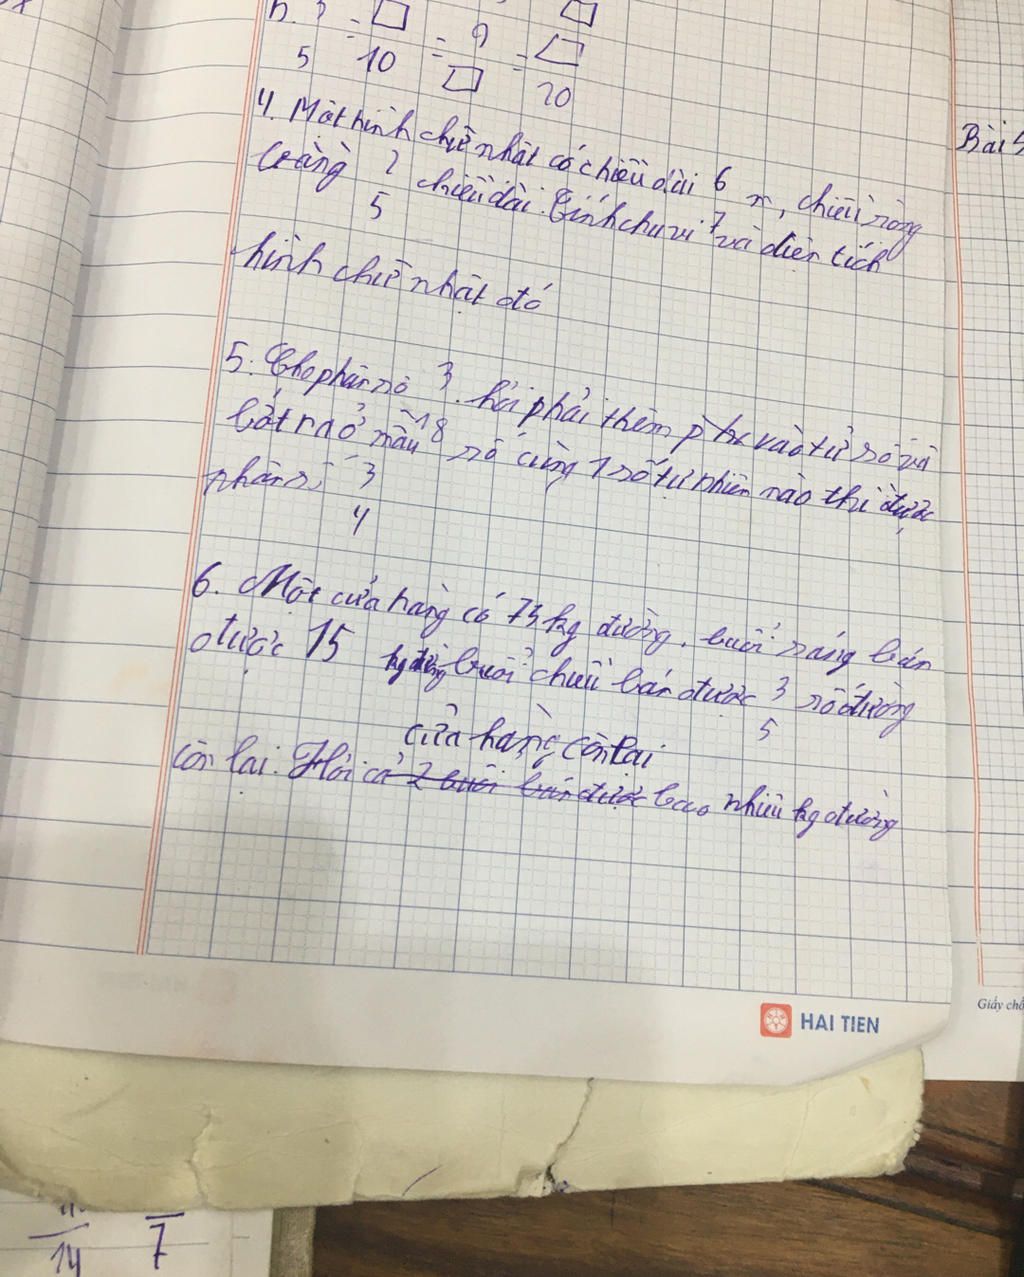 b. 3/5 = □/10 = 9/□ = □/20
4. Một hình chữ nhật có chiều dài 6/7 m, chiều rộng
bằng 2/5 chiều dài. Tính chu vi và diện tích
hình chữ nhật đó
5. Cho phân số 3/18. hỏi phải thêm vào tử số và
bớt ra ở mẫu số cùng 1 số tự nhiên nào thì được
phân số 3/4
6. Một cửa hàng có 75 kg đường. buổi sáng bán
được 15 kg đường buổi chiều bán được 3/5 số đường
cửa hàng còn lại
còn lại. Hỏi cả 2 buổi bán được bao nhiêu kg đường
Bài 5
HAI TIEN
Giấy chố
14
7